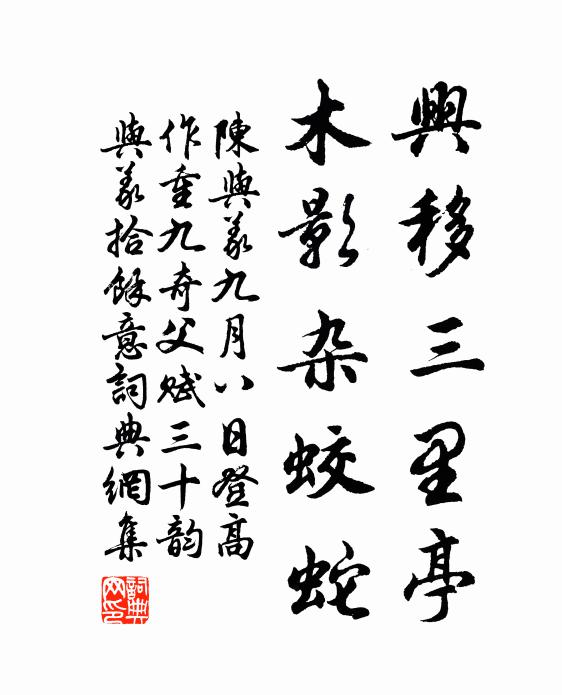 興移三里亭
木影杂蛟蛇
陳與義九月八日登高
作重九奇父赋三十韵
與義拾餘意詞典網集
詞典网印